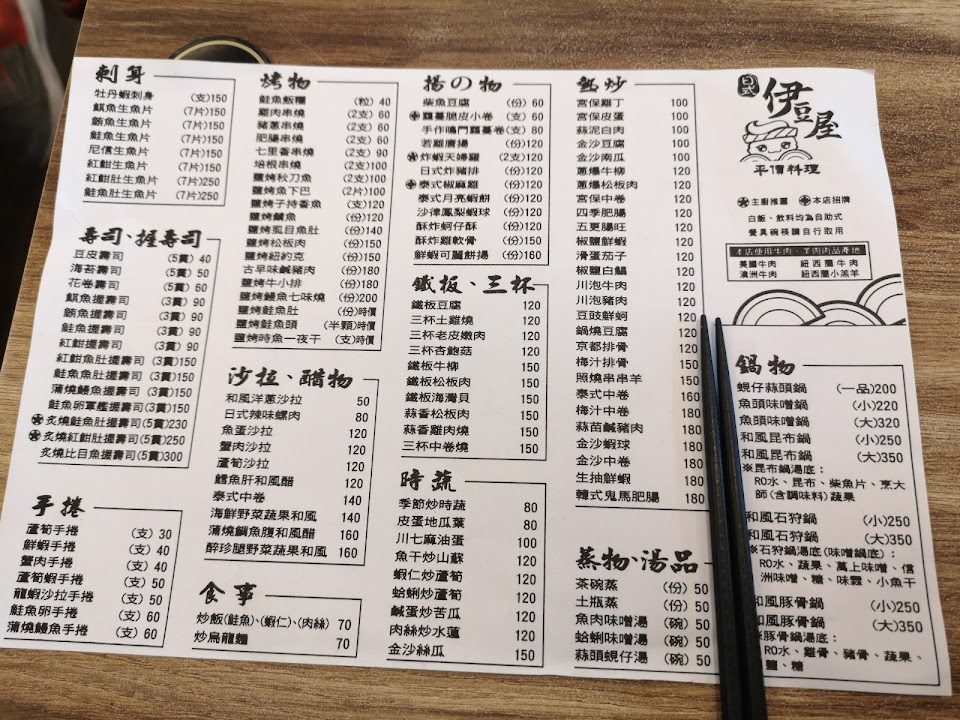 刺身
牡丹蝦刺身 (支)150
鯕魚生魚片 (7片)150
鮪魚生魚片 (7片)150
鮭魚生魚片 (7片)150
尼信生魚片 (7片)150
紅魽生魚片 (7片)150
紅魽肚生魚片 (7片)250
鮭魚肚生魚片 (7片)250
壽司、握壽司
豆皮壽司 (5貫) 40
海苔壽司 (5貫) 50
花卷壽司 (5貫) 60
鯕魚握壽司 (3貫) 90
鮪魚握壽司 (3貫) 90
鮭魚握壽司 (3貫) 90
紅魽握壽司 (3貫) 90
紅魽魚肚握壽司 (3貫)150
鮭魚魚肚握壽司 (3貫)150
蒲燒鰻魚握壽司 (3貫)150
鮭魚卵軍艦握壽司 (3貫)150
炙燒鮭魚肚握壽司(5貫)230
炙燒紅魽肚握壽司(5貫)250
炙燒比目魚握壽司(5貫)300
手捲
蘆筍手捲 (支) 30
鮮蝦手捲 (支) 40
蟹肉手捲 (支) 40
蘆筍蝦手捲 (支) 50
龍蝦沙拉手捲 (支) 50
鮭魚卵手捲 (支) 60
蒲燒鰻魚手捲 (支) 60
烤物
鮭魚飯糰 (粒) 40
雞肉串燒 (2支) 60
豬蔥串燒 (2支) 60
肥腸串燒 (2支) 80
七里香串燒 (2支) 90
培根串燒 (2支)100
鹽烤秋刀魚 (2支)100
鹽烤魚下巴 (2片)100
鹽烤子持香魚 (支)120
鹽烤鯛魚 (份)120
鹽烤虱目魚肚 (份)140
鹽烤松板肉 (份)150
鹽烤紐約克 (份)150
古早味鹹豬肉 (份)180
鹽烤牛小排 (份)180
鹽烤鰻魚七味燒 (份)200
鹽烤鮭魚肚 (份)時價
鹽烤鮭魚頭 (半顆)時價
鹽烤時魚一夜干 (支)時價
沙拉、醋物
和風洋蔥沙拉 50
日式辣味螺肉 80
魚蛋沙拉 120
蟹肉沙拉 120
蘆筍沙拉 120
鱈魚肝和風醋 120
泰式中卷 140
海鮮野菜蔬果和風 140
蒲燒鯛魚腹和風醋 160
醉珍腿野菜蔬果和風 160
食事
炒飯(鮭魚)、(蝦仁)、(肉絲) 70
炒烏龍麵 70
揚の物
柴魚豆腐 (份) 60
蘿蔓脆皮小卷 (支) 60
手作鳴門蘿蔓卷 (支) 80
若雞唐揚 (份)120
炸蝦天婦羅 (2支)120
日式炸豬排 (份)120
泰式椒麻雞 (份)120
泰式月亮蝦餅 (份)120
沙律鳳梨蝦球 (份)120
酥炸蚵仔酥 (份)120
酥炸雞軟骨 (份)150
鮮蝦可麗餅揚 (份)160
鐵板、三杯
鐵板豆腐 120
三杯土雞燒 120
三杯老皮嫩肉 120
三杯杏鮑菇 120
鐵板牛柳 150
鐵板松板肉 150
鐵板海灣貝 150
蒜香松板肉 150
蒜香雞肉燒 150
三杯中卷燒 150
時蔬
季節炒時蔬 80
皮蛋地瓜葉 80
川七麻油蛋 100
魚干炒山蘇 120
蝦仁炒蘆筍 120
蛤蜊炒蘆筍 120
鹹蛋炒苦瓜 120
肉絲炒水蓮 120
金沙絲瓜 150
熱炒
宮保雞丁 100
宮保皮蛋 100
蒜泥白肉 100
金沙豆腐 100
金沙南瓜 100
蔥爆牛柳 120
蔥爆松板肉 120
宮保中卷 120
四季肥腸 120
五更腸旺 120
椒鹽鮮蝦 120
滑蛋茄子 120
椒鹽白鯧 120
川泡牛肉 120
川泡豬肉 120
豆豉鮮蚵 120
鍋燒豆腐 120
京都排骨 120
梅汁排骨 120
照燒串串羊 120
泰式中卷 160
梅汁中卷 180
蒜苗鹹豬肉 180
金沙蝦球 180
金沙中卷 180
生抽鮮蝦 180
韓式鬼馬肥腸 180
蒸物、湯品
茶碗蒸 (份) 50
土瓶蒸 (份) 50
魚肉味噌湯 (碗) 50
蛤蜊味噌湯 (碗) 50
蒜頭蜆仔湯 (碗) 50
日式 伊豆屋
平價料理
主廚推薦 本店招牌
白飯、飲料均為自助式
餐具碗筷請自行取用
本店使用牛肉、羊肉肉品產地
美國牛肉 紐西蘭牛肉
澳洲牛肉 紐西蘭小羔羊
鍋物
蜆仔蒜頭鍋 (一品)200
魚頭味噌鍋 (小)220
魚頭味噌鍋 (大)320
和風昆布鍋 (小)250
和風昆布鍋 (大)350
※昆布鍋湯底：
RO水、昆布、柴魚片、烹大
師(含調味料)蔬果
和風石狩鍋 (小)250
和風石狩鍋 (大)350
※石狩鍋湯底(味噌鍋底)：
RO水、蔬果、萬上味噌、信
洲味噌、糖、味霖、小魚干
和風豚骨鍋 (小)250
和風豚骨鍋 (大)350
※豚骨鍋湯底：
RO水、雞骨、豬骨、蔬果、
鹽、糖